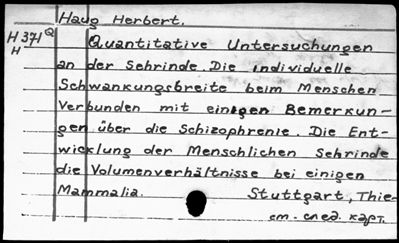 Haug Herbert.
H 371 Q
H
Quantitative Untersuchungen
an der Sehrinde. Die individuelle
Schwankungsbreite beim Menschen
verbunden mit einigen Bemerkun-
gen über die Schizophrenie. Die Ent-
wicklung der Menschlichen Sehrinde
die Volumenverhältnisse bei einigen
Mammalia. Stuttgart, Thie-
см. след. карт.